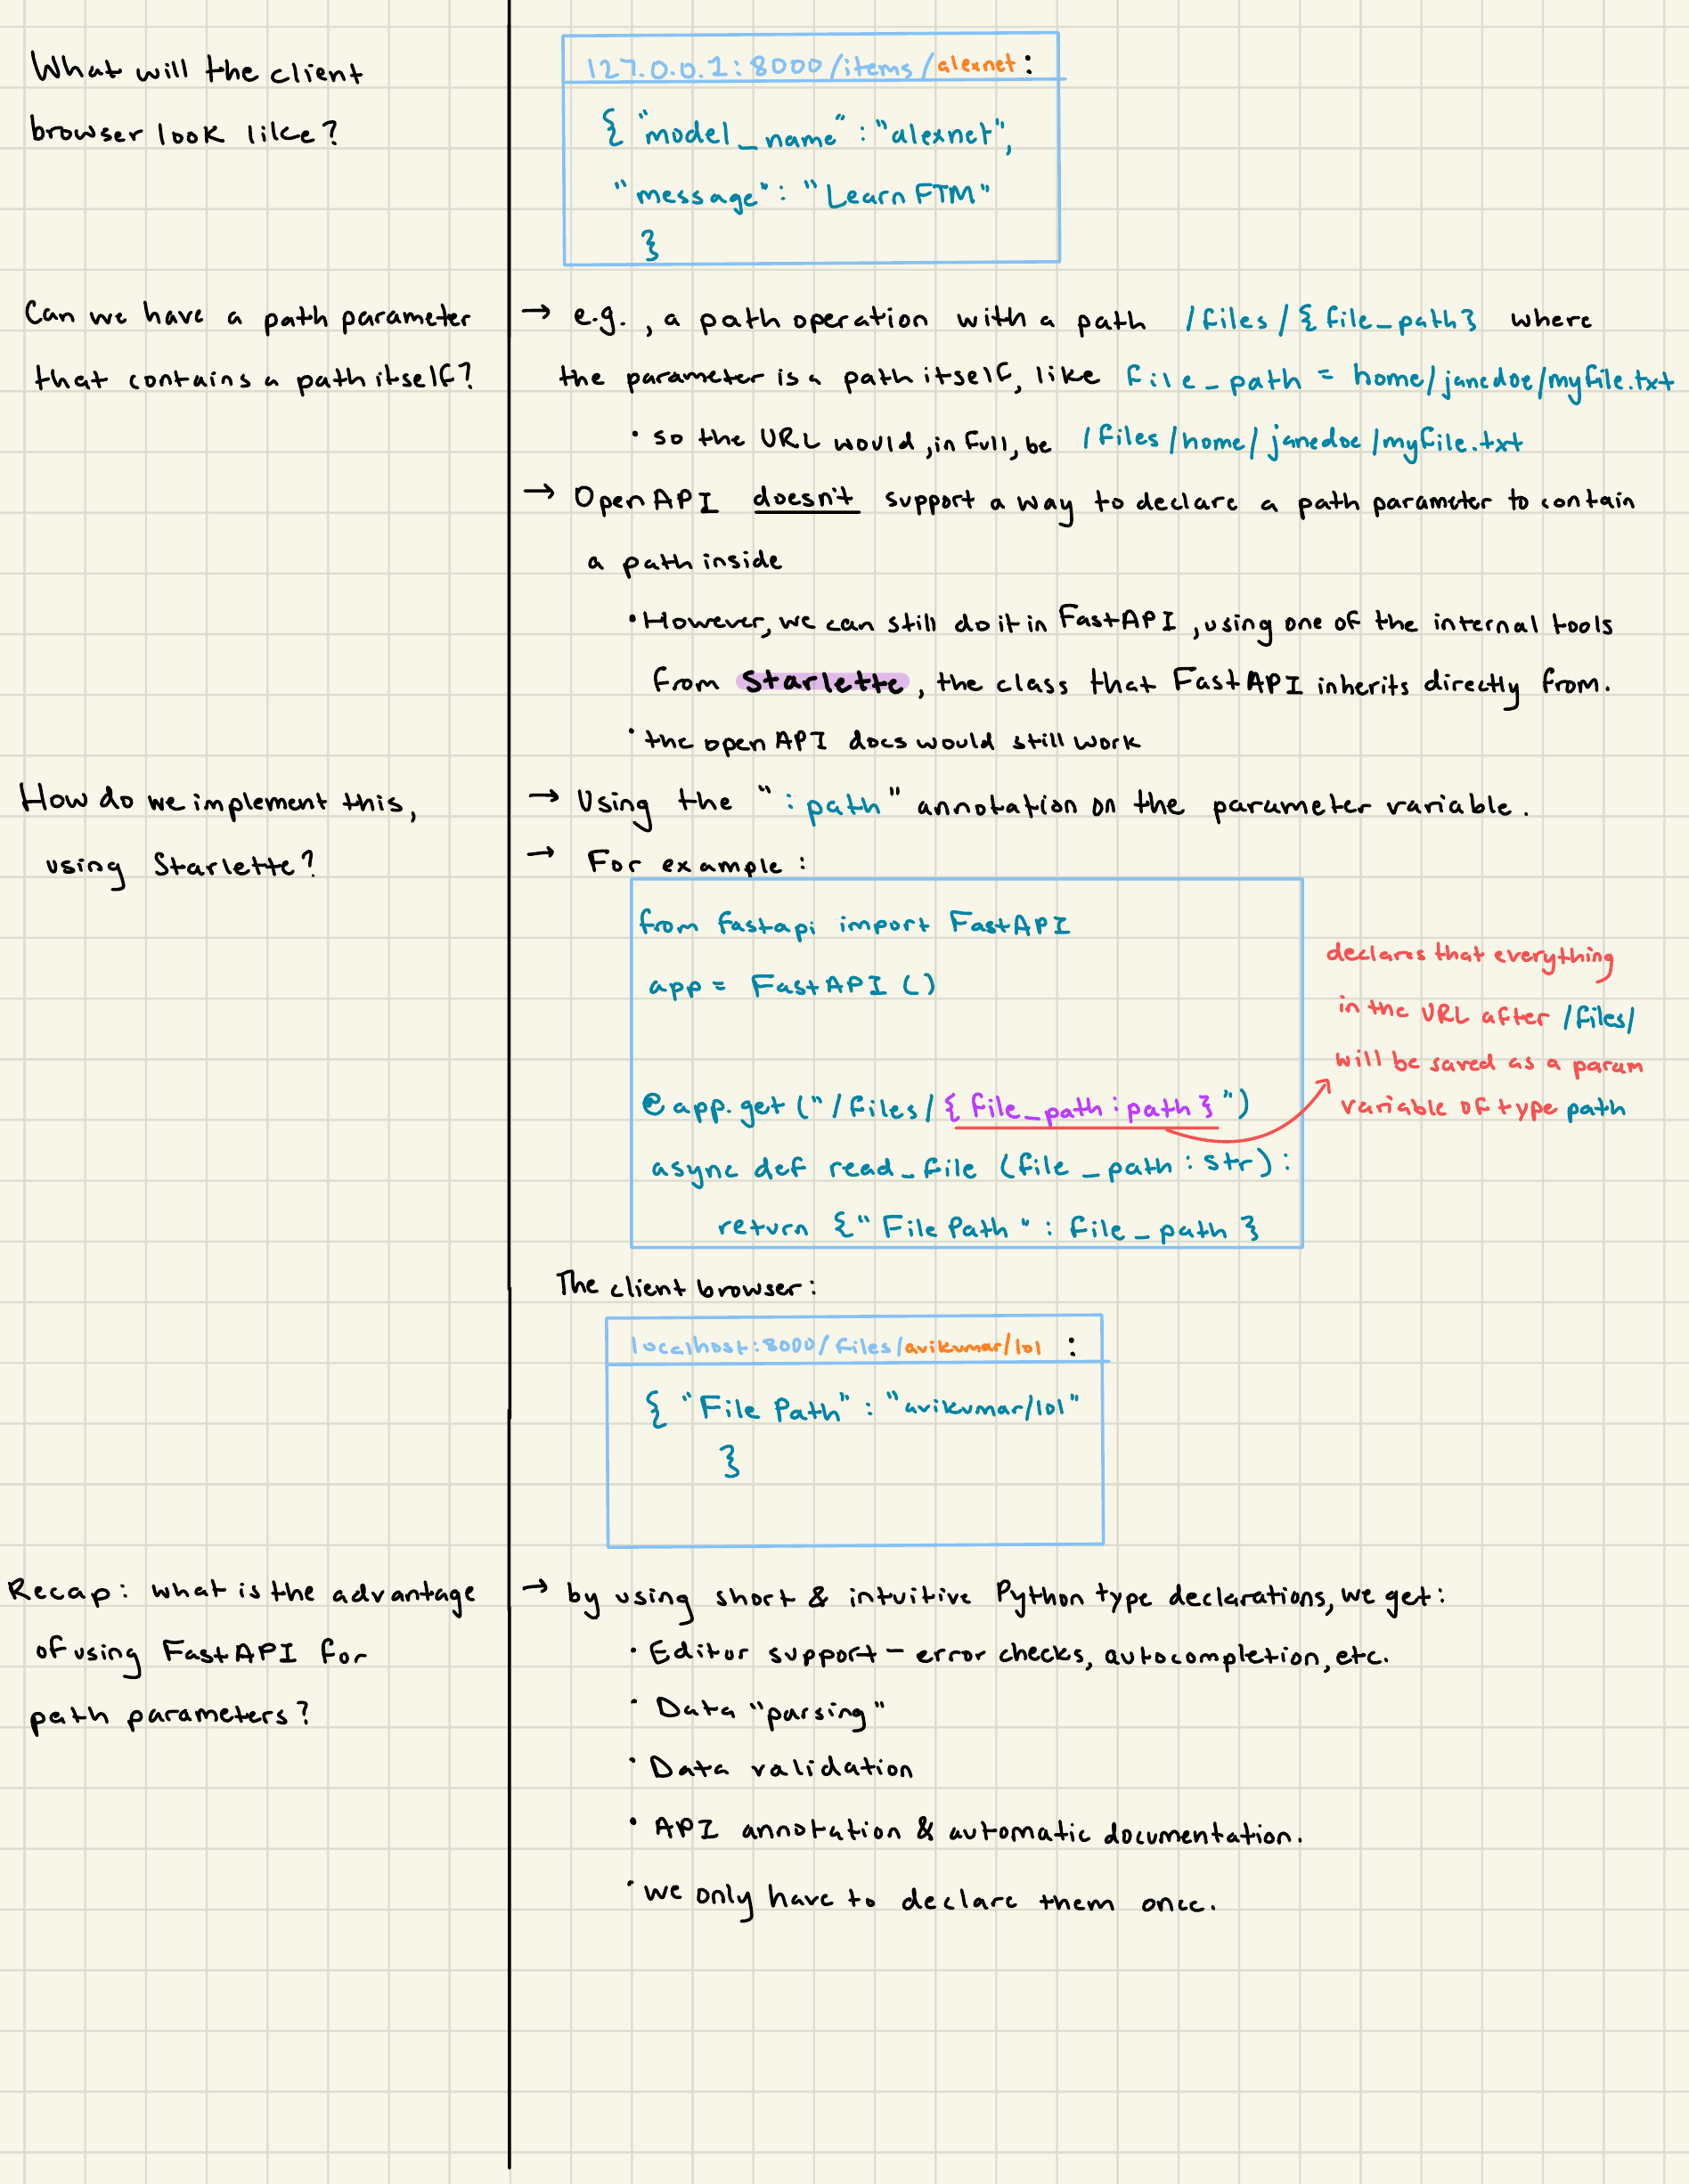 What will the client
browser look like?
127.0.0.1:8000/items/alexnet:
{ "model_name" : "alexnet",
"message" : "Learn FTM"
}
Can we have a path parameter
that contains a path itself?
→ e.g., a path operation with a path /files/{file_path} where
the parameter is a path itself, like file_path = home/janedoe/myfile.txt
• so the URL would, in full, be /files/home/janedoe/myfile.txt
→ OpenAPI doesn't support a way to declare a path parameter to contain
a path inside
• However, we can still do it in FastAPI, using one of the internal tools
from Starlette, the class that FastAPI inherits directly from.
• the open API docs would still work
How do we implement this,
using Starlette?
→ Using the ":path" annotation on the parameter variable.
→ For example:
from fastapi import FastAPI
app = FastAPI()
@app.get("/files/{file_path:path}")
async def read_file (file_path:str):
return {"File Path" : file_path}
declares that everything
in the URL after /files/
will be saved as a param
variable of type path
The client browser:
localhost:8000/files/avikumar/lol :
{ "File Path" : "avikumar/lol"
}
Recap: what is the advantage
of using FastAPI for
path parameters?
→ by using short & intuitive Python type declarations, we get:
• Editor support – error checks, autocompletion, etc.
• Data "parsing"
• Data validation
• API annotation & automatic documentation.
• we only have to declare them once.